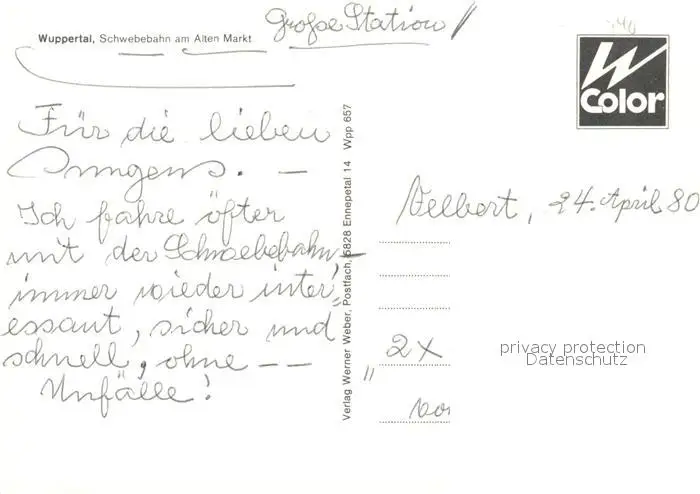 Große Station
Wuppertal, Schwebebahn am Alten Markt
W
Color
Für die lieben
Jungens. —
Ich fahre öfter
mit der Schwebebahn,
immer wieder inter=
essant, sicher und
schnell, ohne — —
Unfälle!
Verlag Werner Weber, Postfach, 5828 Ennepetal 14 Wpp 657
Velbert, 24. April 80
"2x
vor
privacy protection
Datenschutz